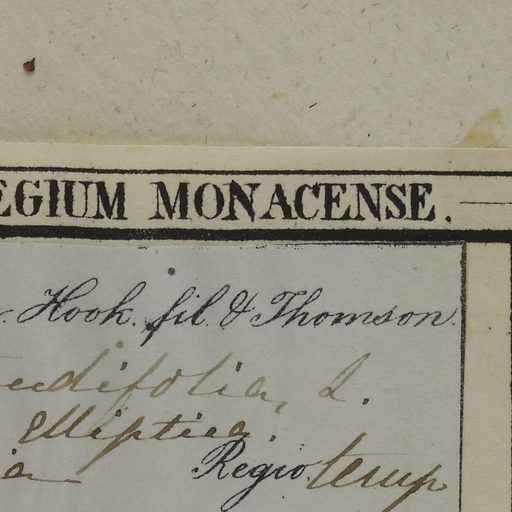 EGIUM MONACENSE.
Hook. fil. & Thomson.
udifolia, L.
elliptica.
ia Regio temp